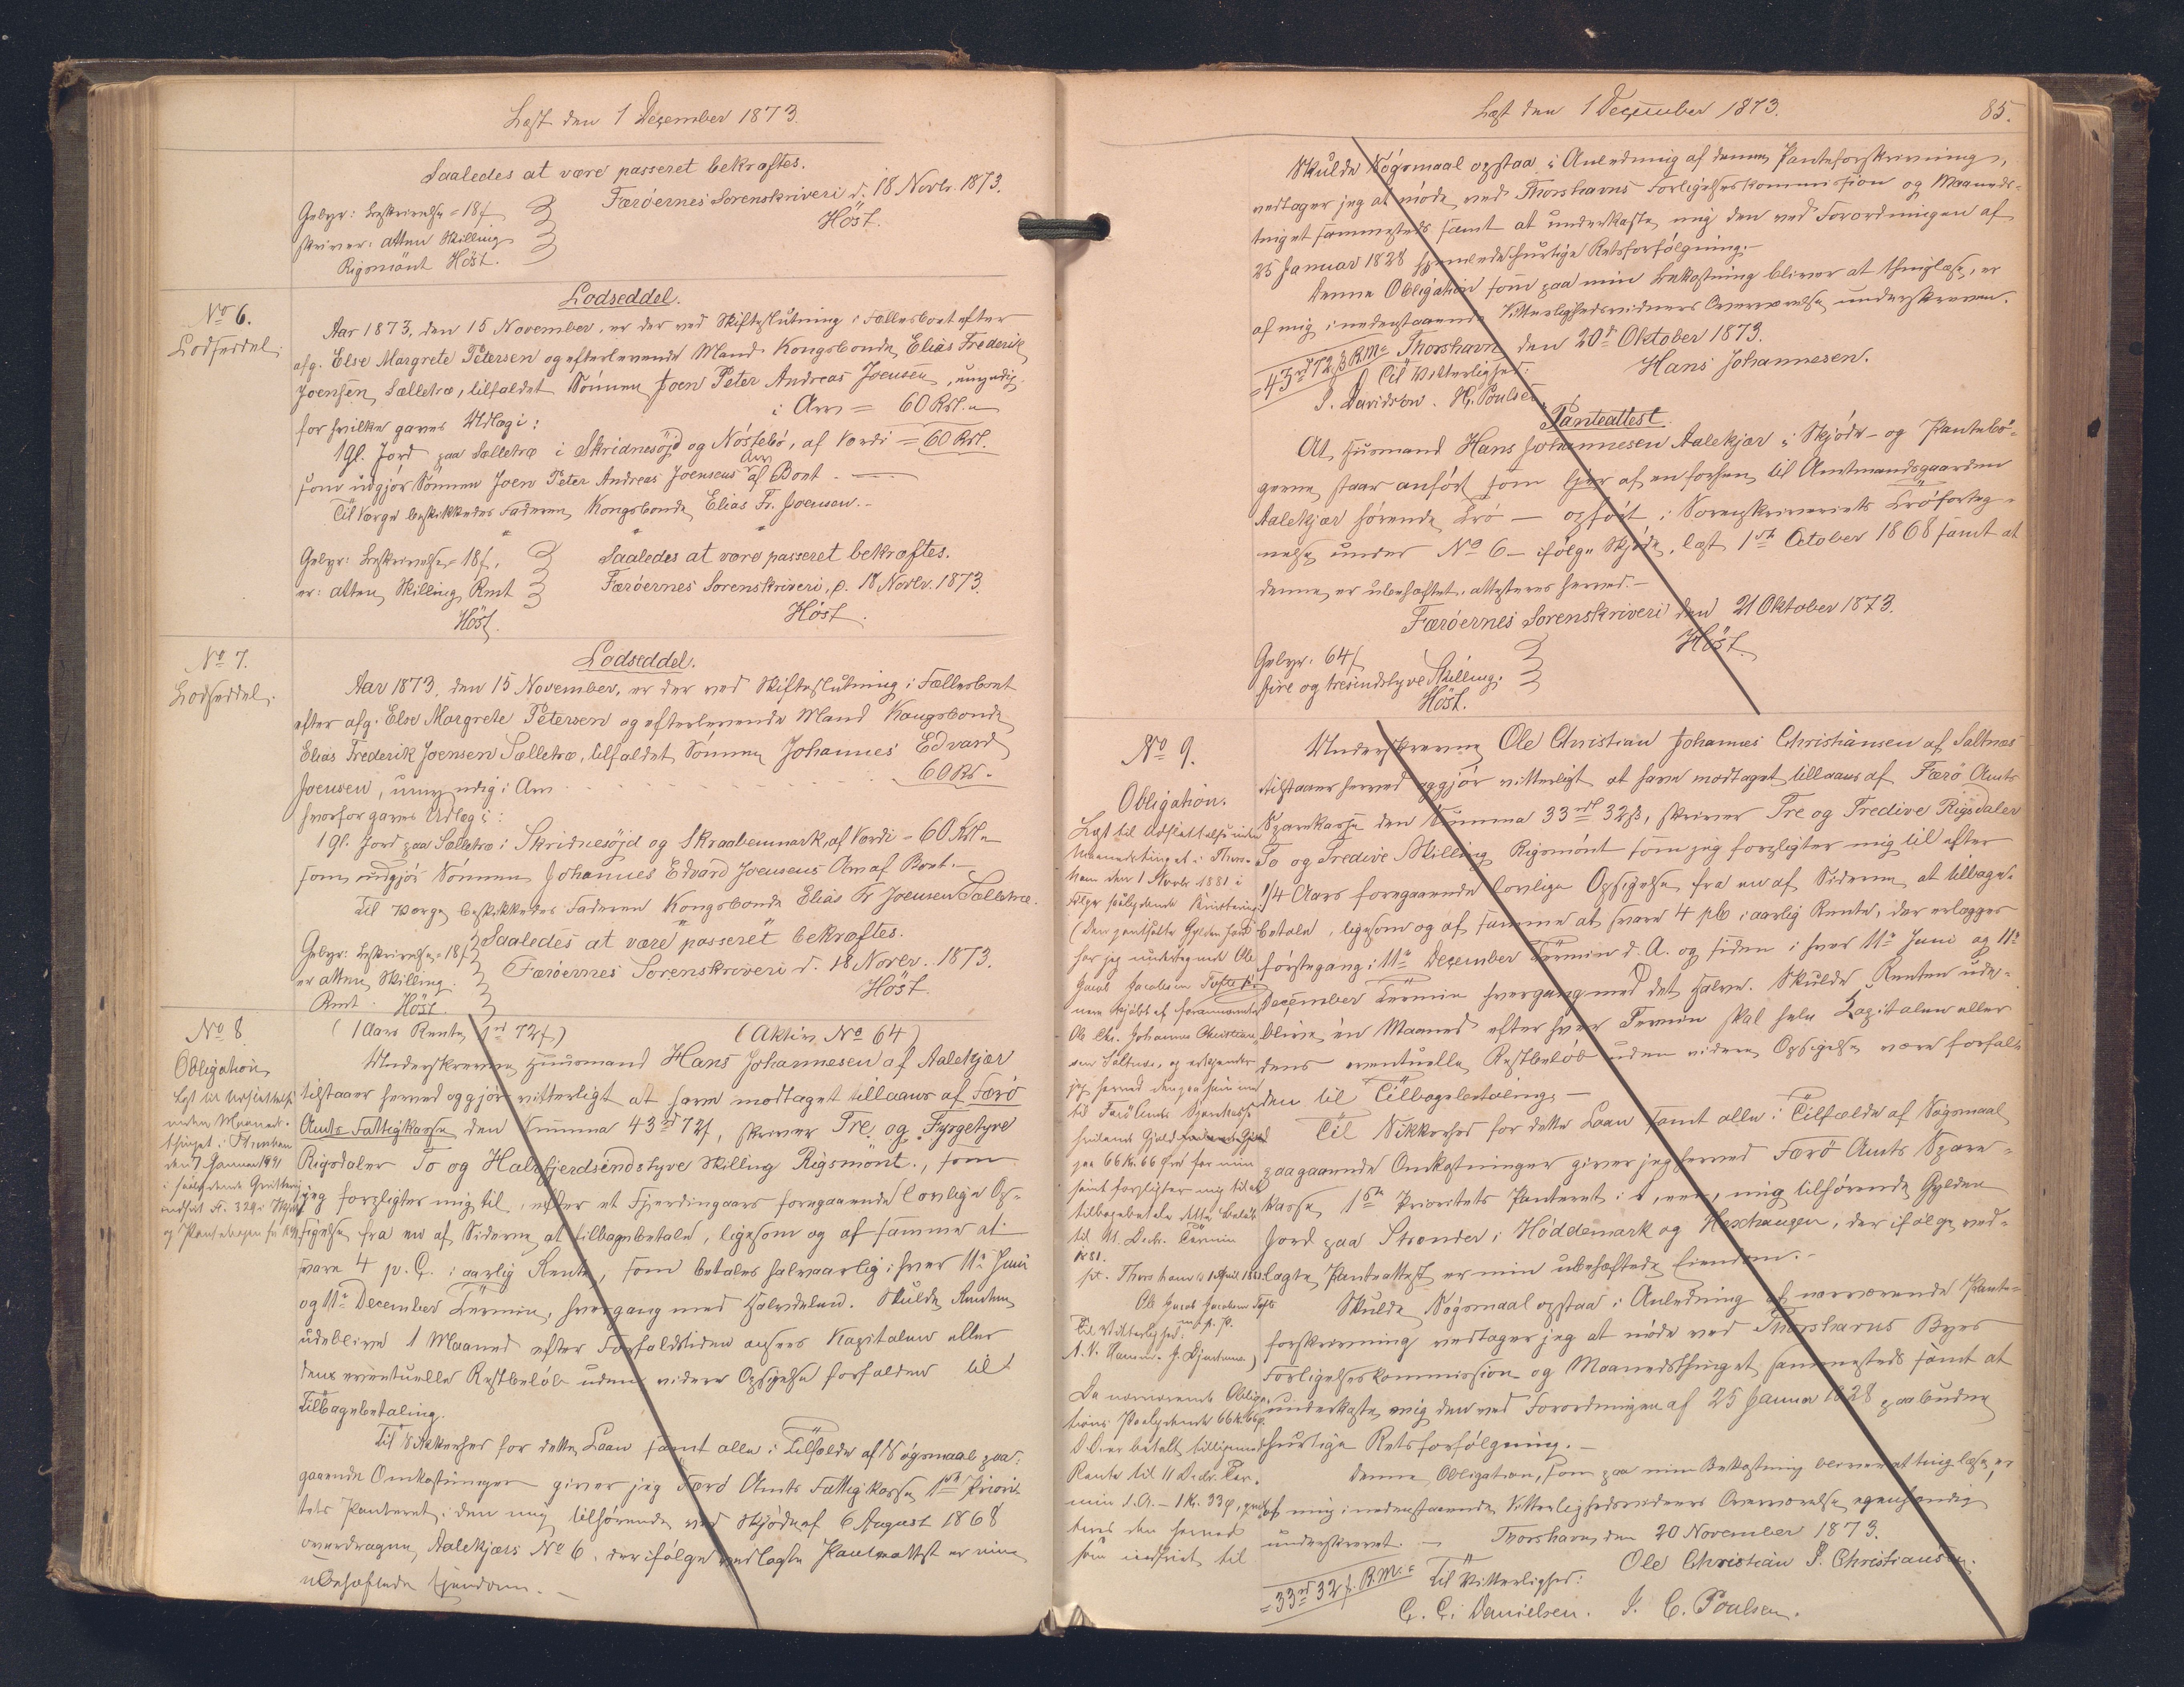 Læst den 1 Dezember 1873.
Saaledes at være passeret bekræftes.
Færöernes Sorenskriveri d. 18 Novbr. 1873.
Höst.
Gebyr: Beskrivelse = 18 f
skriver: atten Skilling
Rigsmönt Höst.
No 6.
Lodseddel.
Lodseddel.
Aar 1873, den 15 November, er der ved Skifteslutning i Fællesboet efter
afg. Else Margrete Petersen og efterlevende Mand Kongsbonde, Elias Frederik
Joensen, Selletræ, tilfaldet Sönnen Joen Peter Andreas Joensen, umyndig,
i Arv = 60 Rdl. "
for hvilke gaves Udlæg i:
1 Gl. Jord paa Selletræ i Skridnesöjd og Nöstebö, af Værdi = 60 Rdl.
som udgjör Sönnen Joen Peter Andreas Joensens Arv af Boet. —
Til Værge beskikkedes Faderen, Kongsbonde Elias Fr. Joensen. -
Gebyr: Beskrivelse = 18 f,
er: atten Skilling Rmt
Höst.
Saaledes at være passeret bekræftes.
Færöernes Sorenskriveri, d. 18 Novbr. 1873.
Höst.
No 7.
Lodseddel.
Lodseddel.
Aar 1873, den 15 November, er der ved Skifteslutning i Fællesboet
efter afg. Else Margrete Petersen og efterlevende Mand Kongsbonde
Elias Frederik Joensen Selletræ, tilfaldet Sönnen Johannes Edvard
Joensen, umyndig i Arv 60 Rd. -
hvorfor gaves Udlæg i:
1 Gl. Jord paa Selletræ i Skridnesöjd og Skraabenmark, af Værdi = 60 Rdl. "
som udgjör Sönnen Johannes Edvard Joensens Arv af Boet. -
Til Værge beskikkedes Faderen Kongsbonde Elias Fr Joensen Selletræ.
Gebyr: Beskrivelse = 18 f
er atten Skilling
Rmt. Höst.
Saaledes at være passeret bekræftes.
Færöernes Sorenskriveri d. 18 Novbr. 1873.
Höst.
No 8
Obligation
Læst til Udslettelse
inden Maaneds-
thinget i Thorshavn
den 7 Januar 1891
(1 Aars Rente 1 rd 72 f)
(Aktiv No 64)
Underskrevne Huusmand Hans Johannesen af Aalekjær
tilstaaer herved og gjör vitterligt at have modtaget tillaans af Færö
Amts Fattigkasse den Summa 43 rd 72 f, skriver Tre og Fyrgetyve
Rigsdaler To og Halvfjerdsindstyve Skilling Rigsmönt., som
jeg forpligter mig til, efter et Fjerdingaars foregaaende lovlige Op-
sigelse fra en af Siderne at tilbagebetale, ligesom og af samme at
svare 4 p. C. i aarlig Rente, som betales halvaarlig i hver 11te Juni
og 11te December Termin, hvergang med Halvdelen. Skulde Renten
udeblive 1 Maaned efter Forfaldstiden ansees Kapitalen eller
dens eventuelle Restbelöb uden videre Opsigelse forfalden til
Tilbagebetaling.
Til Sikkerhed for dette Laan samt alle i Tilfælde af Sögsmaal paa-
gaaende Omkostninger giver jeg Færö Amts Fattigkasse 1ste Priori-
tets Panteret i den mig tilhörende ved Skjöde af 6 August 1868
overdragne Aalekjærs No 6, der ifölge vedlagte Panteattest er min
ubehæftede Ejendom. -
Læst den 1 Dezember 1873.
85.
Skulde Sögsmaal opstaa i Anledning af denne Panteforskrivning,
vedtager jeg at möde ved Thorshavns Forligelseskommission og Maaneds-
tinget sammesteds samt at underkaste mig den ved Forordningen af
25 Januar 1828 hurtige Retsforfölgning. -
Denne Obligation som paa min Bekostning bliver at thinglæse, er
af mig i nedenstaaende Vitterlighedsvidners Overværelse underskreven.
= 43 rd 72 ß R.M. =
Thorshavn den 20de Oktober 1873.
Til Vitterlighed:
Hans Johannesen.
J. Davidsen. H. Poulsen.
Panteattest.
At Huusmand Hans Johannesen Aalekjær i Skjöde- og Pantebö-
gerne staar anfört som Ejer af en forhen til Amtmandsgaarden
Aalekjær hörende Trö — opfört i Sorenskriveriets Tröforteg-
nelse under No 6 - ifölge Skjöde, læst 1ste October 1868 samt at
denne er ubehæftet, attesteres herved. -
Færöernes Sorenskriveri den 21 Oktober 1873.
Höst.
Gebyr: 64 f
fire og tresindstyve Skilling.
Höst.
No 9.
Obligation.
Læst til Udslettelse inden
Maanedstinget i Thors-
havn den 1 Novbr 1881 i
Fölge saalydende Kvittering:
Ole Jacob Jacobsen Tofte
Til Vitterlighed:
Underskrevne Ole Christian Johannes Christiansen af Saltnæs
tilstaaer herved og gjör vitterligt at have modtaget tillaans af Færö Amts
Sparekasse den Summa 33 rdl 32 ß, skriver Tre og Tredive Rigsdaler
To og Tredive Skilling Rigsmönt som jeg forpligter mig til efter
1/4 Aars foregaaende lovlige Opsigelse fra en af Siderne, at tilbage-
betale, ligesom og af samme at svare 4 pCt i aarlig Rente, der erlægges
förstegang i 11te Dezember Termin d. A. og siden i hver 11te Juni og 11te
Dezember Termin hvergang med det Halve. Skulde Renten ude-
blive en Maaned efter hver Termin skal hele Kapitalen eller
dens eventuelle Restbelöb uden videre Opsigelse være forfal-
den til Tilbagebetaling. -
Til Sikkerhed for dette Laan samt alle i Tilfælde af Sögsmaal
paagaaende Omkostninger giver jeg herved Færö Amts Spare-
kasse 1ste Prioritets Panteret i 1, een, mig tilhörende Gylden
Jord paa Strænder i Höddemark og Hexhaugen, der ifölge ved-
lagte Panteattest er min ubehæftede Eiendom. -
Skulde Sögsmaal opstaa i Anledning af nærværende Pante-
forskrivning vedtager jeg at möde ved Thorshavns Byes
Forligelseskommission og Maanedsthinget sammesteds samt at
underkaste mig den ved Forordningen af 25 Januar 1828 paabudne
hurtige Retsforfölgning. -
Denne Obligation, som paa min Bekostning bliver at tinglæse, er
af mig i nedenstaaende Vitterlighedsvidners Overværelse egenhændig
underskrevet. — Thorshavn, den 20 November 1873.
= 33 rd 32 f. R.M. =
Til Vitterlighed:
Ole Christian J. Christiansen.
C. C. Danielsen. J. C. Poulsen.